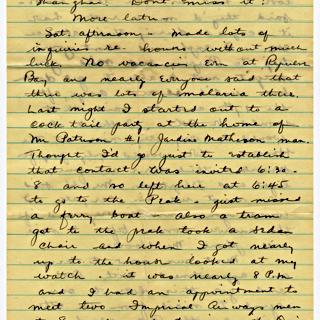 Shanghai. Dont miss it!
More later
Sat. afternoon - Made lots of
inquiries re houses without much
luck. No vacancies even at Repulse
Bay and nearly everyone said that
there was lots of malaria there.
Last night I started out to a
cock tail party at the home of
Mr Paterson #1 Jardine Matheson man.
Thought I'd go just to establish
that contact. Was invited 6:30-
8 and so left here at 6:45
to go to the Peak - just missed
a ferry boat - also a tram
got to the peak took a sedan
chair and when I got nearly
up to the house looked at my
watch - it was nearly 8 P.m.
and I had an appointment to
meet two Imperial Airways men